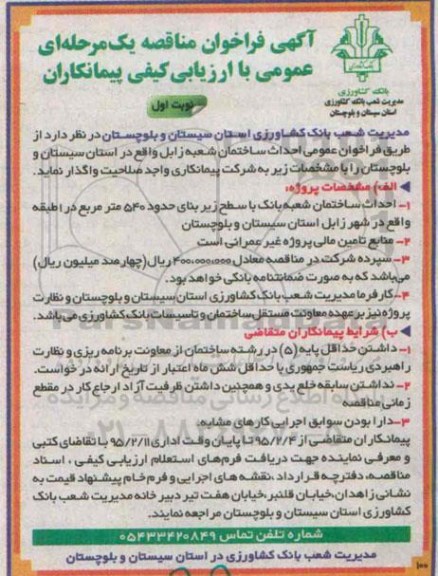 آگهی فراخوان مناقصه یک‌مرحله‌ای
عمومی با ارزیابی کیفی پیمانکاران
بانک کشاورزی
مدیریت شعب بانک کشاورزی
استان سیستان و بلوچستان
نوبت اول
مدیریت شعب بانک کشاورزی استان سیستان و بلوچستان در نظر دارد از
طریق فراخوان عمومی احداث ساختمان شعبه زابل واقع در استان سیستان و
بلوچستان را با مشخصات زیر به شرکت پیمانکاری واجد صلاحیت واگذار نماید.
الف) مشخصات پروژه:
۱- احداث ساختمان شعبه بانک با سطح زیر بنای حدود ۵۴۰ متر مربع در ۱ طبقه
واقع در شهر زابل استان سیستان و بلوچستان
۲- منابع تامین مالی پروژه غیر عمرانی است
۳- سپرده شرکت در مناقصه معادل ۴۰۰،۰۰۰،۰۰۰ ریال(چهارصد میلیون ریال)
می‌باشد که به صورت ضمانتنامه بانکی خواهد بود.
۴- کارفرما مدیریت شعب بانک کشاورزی استان سیستان و بلوچستان و نظارت
پروژه نیز بر عهده معاونت مستقل ساختمان و تاسیسات بانک کشاورزی می‌باشد.
ب) شرایط پیمانکاران متقاضی
۱- داشتن حداقل پایه (۵) در رشته ساختمان از معاونت برنامه ریزی و نظارت
راهبردی ریاست جمهوری با حداقل شش ماه اعتبار از تاریخ ارائه درخواست.
۲- نداشتن سابقه خلع یدی و همچنین داشتن ظرفیت آزاد ارجاع کار در مقطع
زمانی مناقصه
۳- دارا بودن سوابق اجرایی کارهای مشابه.
پیمانکاران متقاضی از ۹۵/۲/۴ تا پایان وقت اداری ۹۵/۲/۱۱ با تقاضای کتبی
و معرفی نماینده جهت دریافت فرم‌های استعلام ارزیابی کیفی ، اسناد
مناقصه، دفترچه قرارداد ،نقشه های اجرایی و فرم خام پیشنهاد قیمت به
نشانی زاهدان،خیابان قلنبر،خیابان هفت تیر دبیر خانه مدیریت شعب بانک
کشاورزی استان سیستان و بلوچستان مراجعه نمایند.
شماره تلفن تماس ۰۵۴۳۳۴۲۰۸۴۹
مدیریت شعب بانک کشاورزی در استان سیستان و بلوچستان
۱۰۰